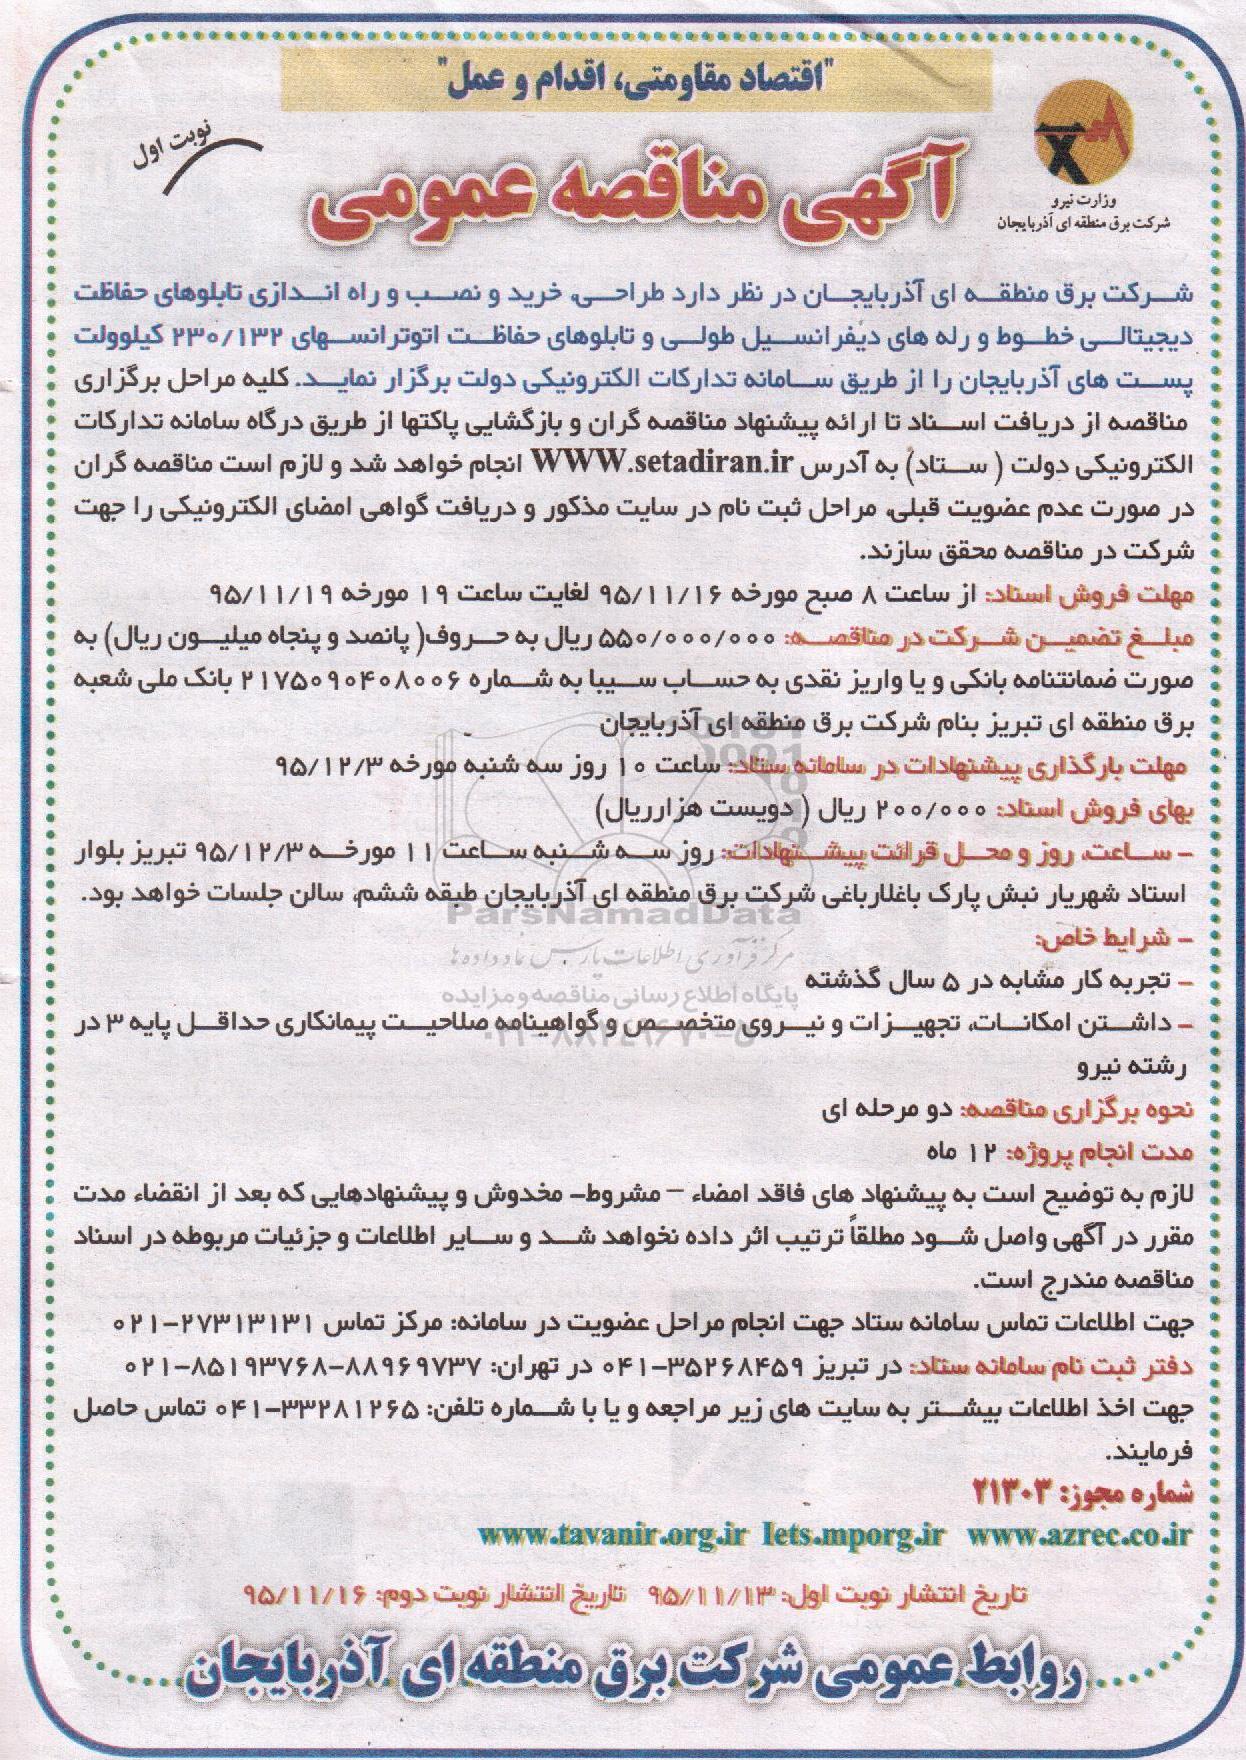 "اقتصاد مقاومتی، اقدام و عمل"
وزارت نیرو
شرکت برق منطقه ای آذربایجان
نوبت اول
آگهی مناقصه عمومی
شرکت برق منطقه ای آذربایجان در نظر دارد طراحی، خرید و نصب و راه اندازی تابلوهای حفاظت
دیجیتالی خطوط و رله های دیفرانسیل طولی و تابلوهای حفاظت اتوترانسهای ۲۳۰/۱۳۲ کیلوولت
پست های آذربایجان را از طریق سامانه تدارکات الکترونیکی دولت برگزار نماید. کلیه مراحل برگزاری
مناقصه از دریافت اسناد تا ارائه پیشنهاد مناقصه گران و بازگشایی پاکتها از طریق درگاه سامانه تدارکات
الکترونیکی دولت ( ستاد) به آدرس WWW.setadiran.ir انجام خواهد شد و لازم است مناقصه گران
در صورت عدم عضویت قبلی، مراحل ثبت نام در سایت مذکور و دریافت گواهی امضای الکترونیکی را جهت
شرکت در مناقصه محقق سازند.
مهلت فروش اسناد: از ساعت ۸ صبح مورخه ۹۵/۱۱/۱۶ لغایت ساعت ۱۹ مورخه ۹۵/۱۱/۱۹
مبلغ تضمین شرکت در مناقصه: ۵۵۰/۰۰۰/۰۰۰ ریال به حروف( پانصد و پنجاه میلیون ریال) به
صورت ضمانتنامه بانکی و یا واریز نقدی به حساب سیبا به شماره ۲۱۷۵۰۹۰۴۰۸۰۰۶ بانک ملی شعبه
برق منطقه ای تبریز بنام شرکت برق منطقه ای آذربایجان
مهلت بارگذاری پیشنهادات در سامانه ستاد: ساعت ۱۰ روز سه شنبه مورخه ۹۵/۱۲/۳
بهای فروش اسناد: ۲۰۰/۰۰۰ ریال ( دویست هزارریال)
– ساعت، روز و محل قرائت پیشنهادات: روز سه شنبه ساعت ۱۱ مورخه ۹۵/۱۲/۳ تبریز بلوار
استاد شهریار نبش پارک باغلارباغی شرکت برق منطقه ای آذربایجان طبقه ششم، سالن جلسات خواهد بود.
ParsNamadData
– شرایط خاص:
مرکز فرآوری اطلاعات پارس نماد داده ها
– تجربه کار مشابه در ۵ سال گذشته
پایگاه اطلاع رسانی مناقصه و مزایده
– داشتن امکانات، تجهیزات و نیروی متخصص و گواهینامه صلاحیت پیمانکاری حداقل پایه ۳ در
رشته نیرو
نحوه برگزاری مناقصه: دو مرحله ای
مدت انجام پروژه: ۱۲ ماه
لازم به توضیح است به پیشنهاد های فاقد امضاء – مشروط- مخدوش و پیشنهادهایی که بعد از انقضاء مدت
مقرر در آگهی واصل شود مطلقاً ترتیب اثر داده نخواهد شد و سایر اطلاعات و جزئیات مربوطه در اسناد
مناقصه مندرج است.
جهت اطلاعات تماس سامانه ستاد جهت انجام مراحل عضویت در سامانه: مرکز تماس ۲۷۳۱۳۱۳۱-۰۲۱
دفتر ثبت نام سامانه ستاد: در تبریز ۳۵۲۶۸۴۵۹-۰۴۱ در تهران: ۸۸۹۶۹۷۳۷-۸۵۱۹۳۷۶۸-۰۲۱
جهت اخذ اطلاعات بیشتر به سایت های زیر مراجعه و یا با شماره تلفن: ۳۳۲۸۱۲۶۵-۰۴۱ تماس حاصل
فرمایند.
شماره مجوز: ۲۱۳۰۳
www.tavanir.org.ir Iets.mporg.ir www.azrec.co.ir
تاریخ انتشار نوبت اول: ۹۵/۱۱/۱۳ تاریخ انتشار نوبت دوم: ۹۵/۱۱/۱۶
روابط عمومی شرکت برق منطقه ای آذربایجان